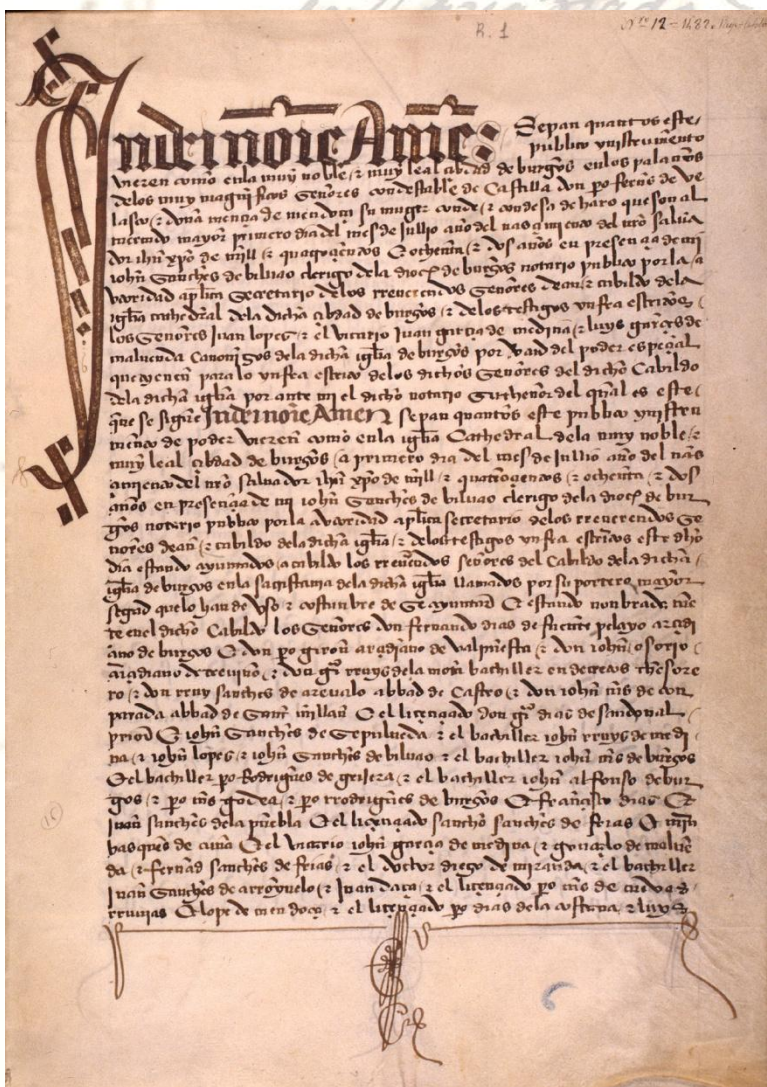 R. 1
Indei noīe Amē: Sepan quantos este
publico ynstrumento
vieren como enla muy noble & muy leal cibdad de burgos enlos palaçios
delos muy magnificos Señores condestable de Castilla don po ferrs de ve
lasco & doña mençia de mendoça su muger conde & condesa de haro que son al
merced mayor primero dia del mes de jullio año del nasçimiento del nro salua
dor ihu xpo de mill & quatroçientos & ochenta & dos años en presençia de mi
iohn Sanches de biluao clerigo dela dioç de burgos notario publico por la a
uctoridad aplica Secretario delos reuerendos Señores dean & cabildo dela
iglia cathedral dela dicha cibdad de burgos & delos testigos ynfra escriptos
los Señores Iuan lopes & el vicario Iuan garçia de medina & luys garçes de
maluenda Canonigos dela dicha iglia de burgos por del poder espeçial
que tienen para lo ynfra escripto delos dichos Señores del dicho Cabildo
dela dicha iglia por ante mi el dicho notario Su thenor del qual es este
que se sigue Indei noīe Amen Sepan quantos este publico ynstru
mento de poder vieren como enla iglia Cathedral dela muy noble &
muy leal cibdad de burgos a primero dia del mes de Iullio año del nas
çimiento del nro saluador ihu xpo de mill & quatroçientos & ochenta & dos
años en presençia de mi iohn Sanches de biluao clerigo dela dioç de bur
gos notario publico por la auctoridad aplica secretario delos reuerendos Se
ñores dean & cabildo dela dicha iglia & delos testigos ynfra escriptos este dho
dia estando ayuntados a cabildo los reuerendos señores del Cabildo dela dicha
iglia de burgos enla sacristania dela dicha iglia llamados por su portero mayor
segund que lo han de vso & costunbre de se ayuntar E estando nonbrada men
te enel dicho Cabildo los Señores don fernando dias de fuente pelayo arçidi
ano de burgos E don po giron arçidiano de valpuesta & don iohn osorio
arçidiano de treuiño & don gr rruys dela mota bachiller en decretos thesore
ro & don rruy sanches de areualo abbad de Castro & don iohn ms de con
parada abbad de Sant millan E el liçençiado don gr dias de sandoual
prior E iohn Sanches de Sepulueda & el bachiller iohn rruys de medi
na & iohn lopes & iohn Sanches de biluao & el bachiller iohn ms de burgos
E el bachiller po Rodrigues de grijera & el bachiller iohn alfonso de bur
gos & po ms godea & po rrodrigues de burgos E françisco dias E
iuan sanches dela puebla E el liçençiado sancho sanches de frias E min
vasques de E el vicario iohn garçia de medina & gonçalo de maluen
da & fernand sanches de frias & el doctor diego de miranda & el bachiller
iuan Sanches de arroyuelo & Iuan daça & el liçençiado po ms de couas
rruuias E lope de mendoça & el liçençiado po dias dela costana & luys